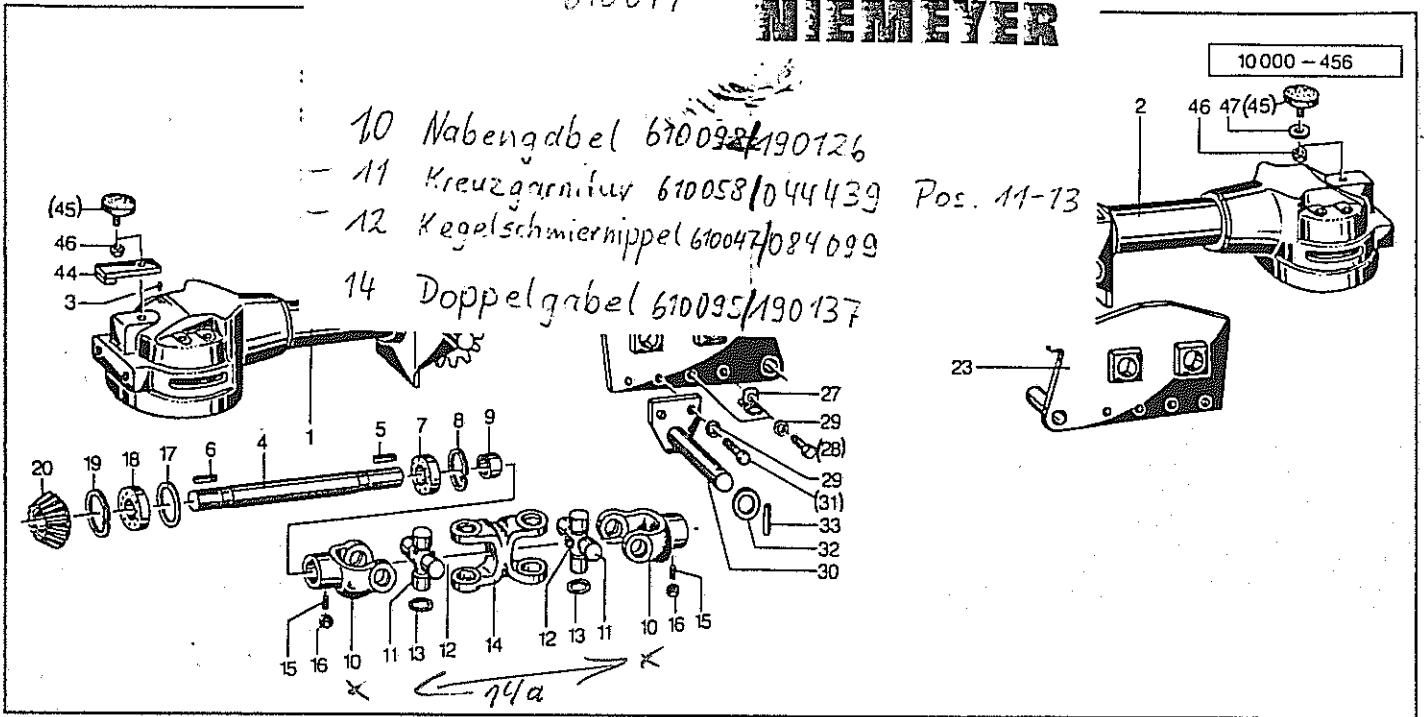 NIEMEYER
10000 – 456
10 Nabengabel 610098/190126
– 11 Kreuzgarnitur 610058/044439 Pos. 11-13
– 12 Kegelschmiernippel 610047/084099
14 Doppelgabel 610095/190137
2 46 47(45)
(45)
46
44
3
1
23
27
29
(28)
29
(31)
33
32
30
20 19 18 17 6 4 5 7 8 9
15 16 10 11 13 12 14 12 13 11 10 16 15
x 14/a x